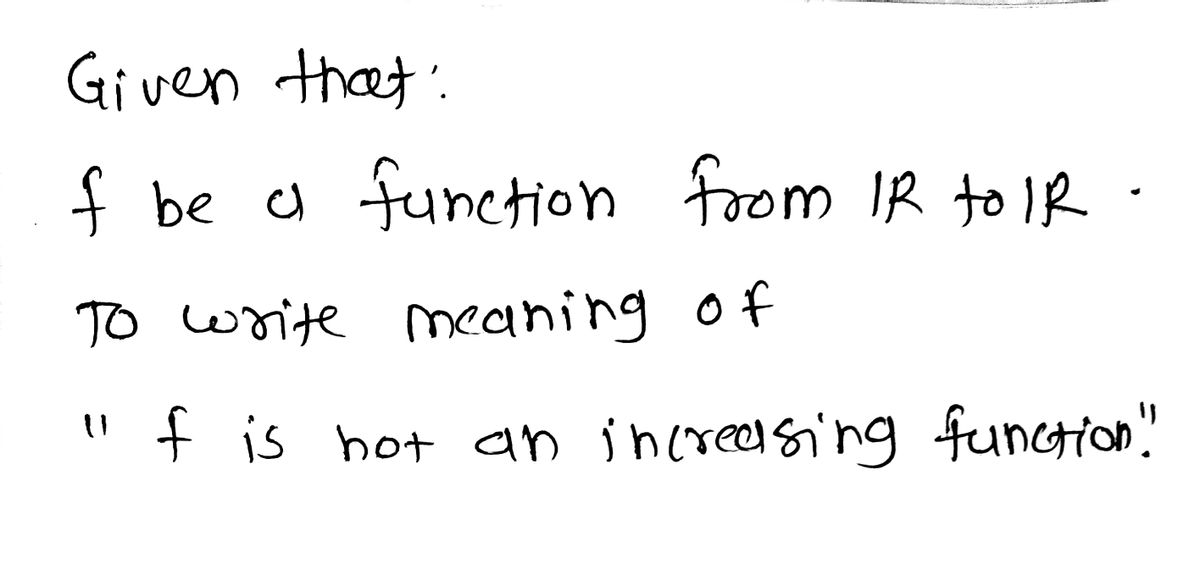 Given that:
f be a function from IR to IR .
To write meaning of
"f is not an increasing function."